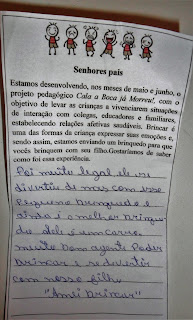 Senhores pais
Estamos desenvolvendo, nos meses de maio e junho, o
projeto pedagógico Cala a Boca já Morreu!, com o
objetivo de levar as crianças a vivenciarem situações
de interação com colegas, educadores e familiares,
estabelecendo relações afetivas saudáveis. Brincar é
uma das formas da criança expressar suas emoções e,
sendo assim, estamos enviando um brinquedo para que
vocês brinquem com seu filho.Gostaríamos de saber
como foi essa experiência.
Foi muito legal ele se
divertiu de mas com esse
pequeno brinquedo e
ainda é o melhor brinque
do dele é um carro
muito bom agente Poder
brincar e se divertir
com nosso filho
"Amei brincar"